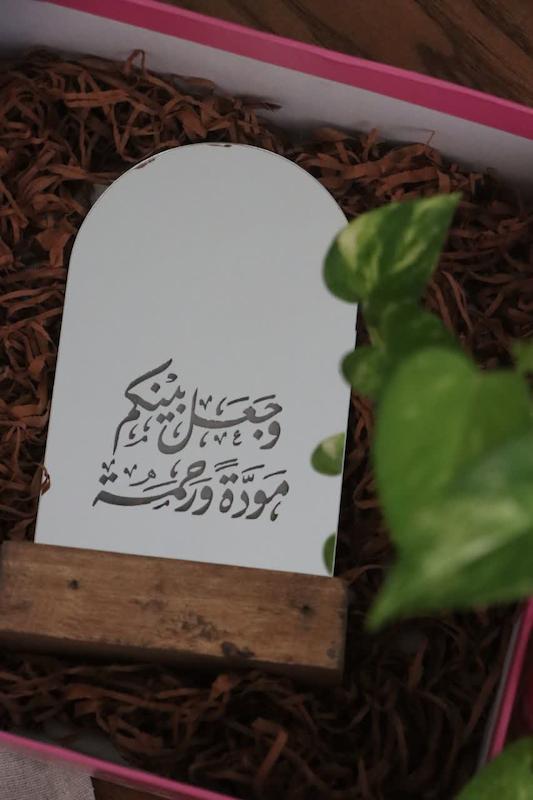 وَجَعَلَ بَيْنَكُم
مَوَدَّةً وَرَحْمَةً